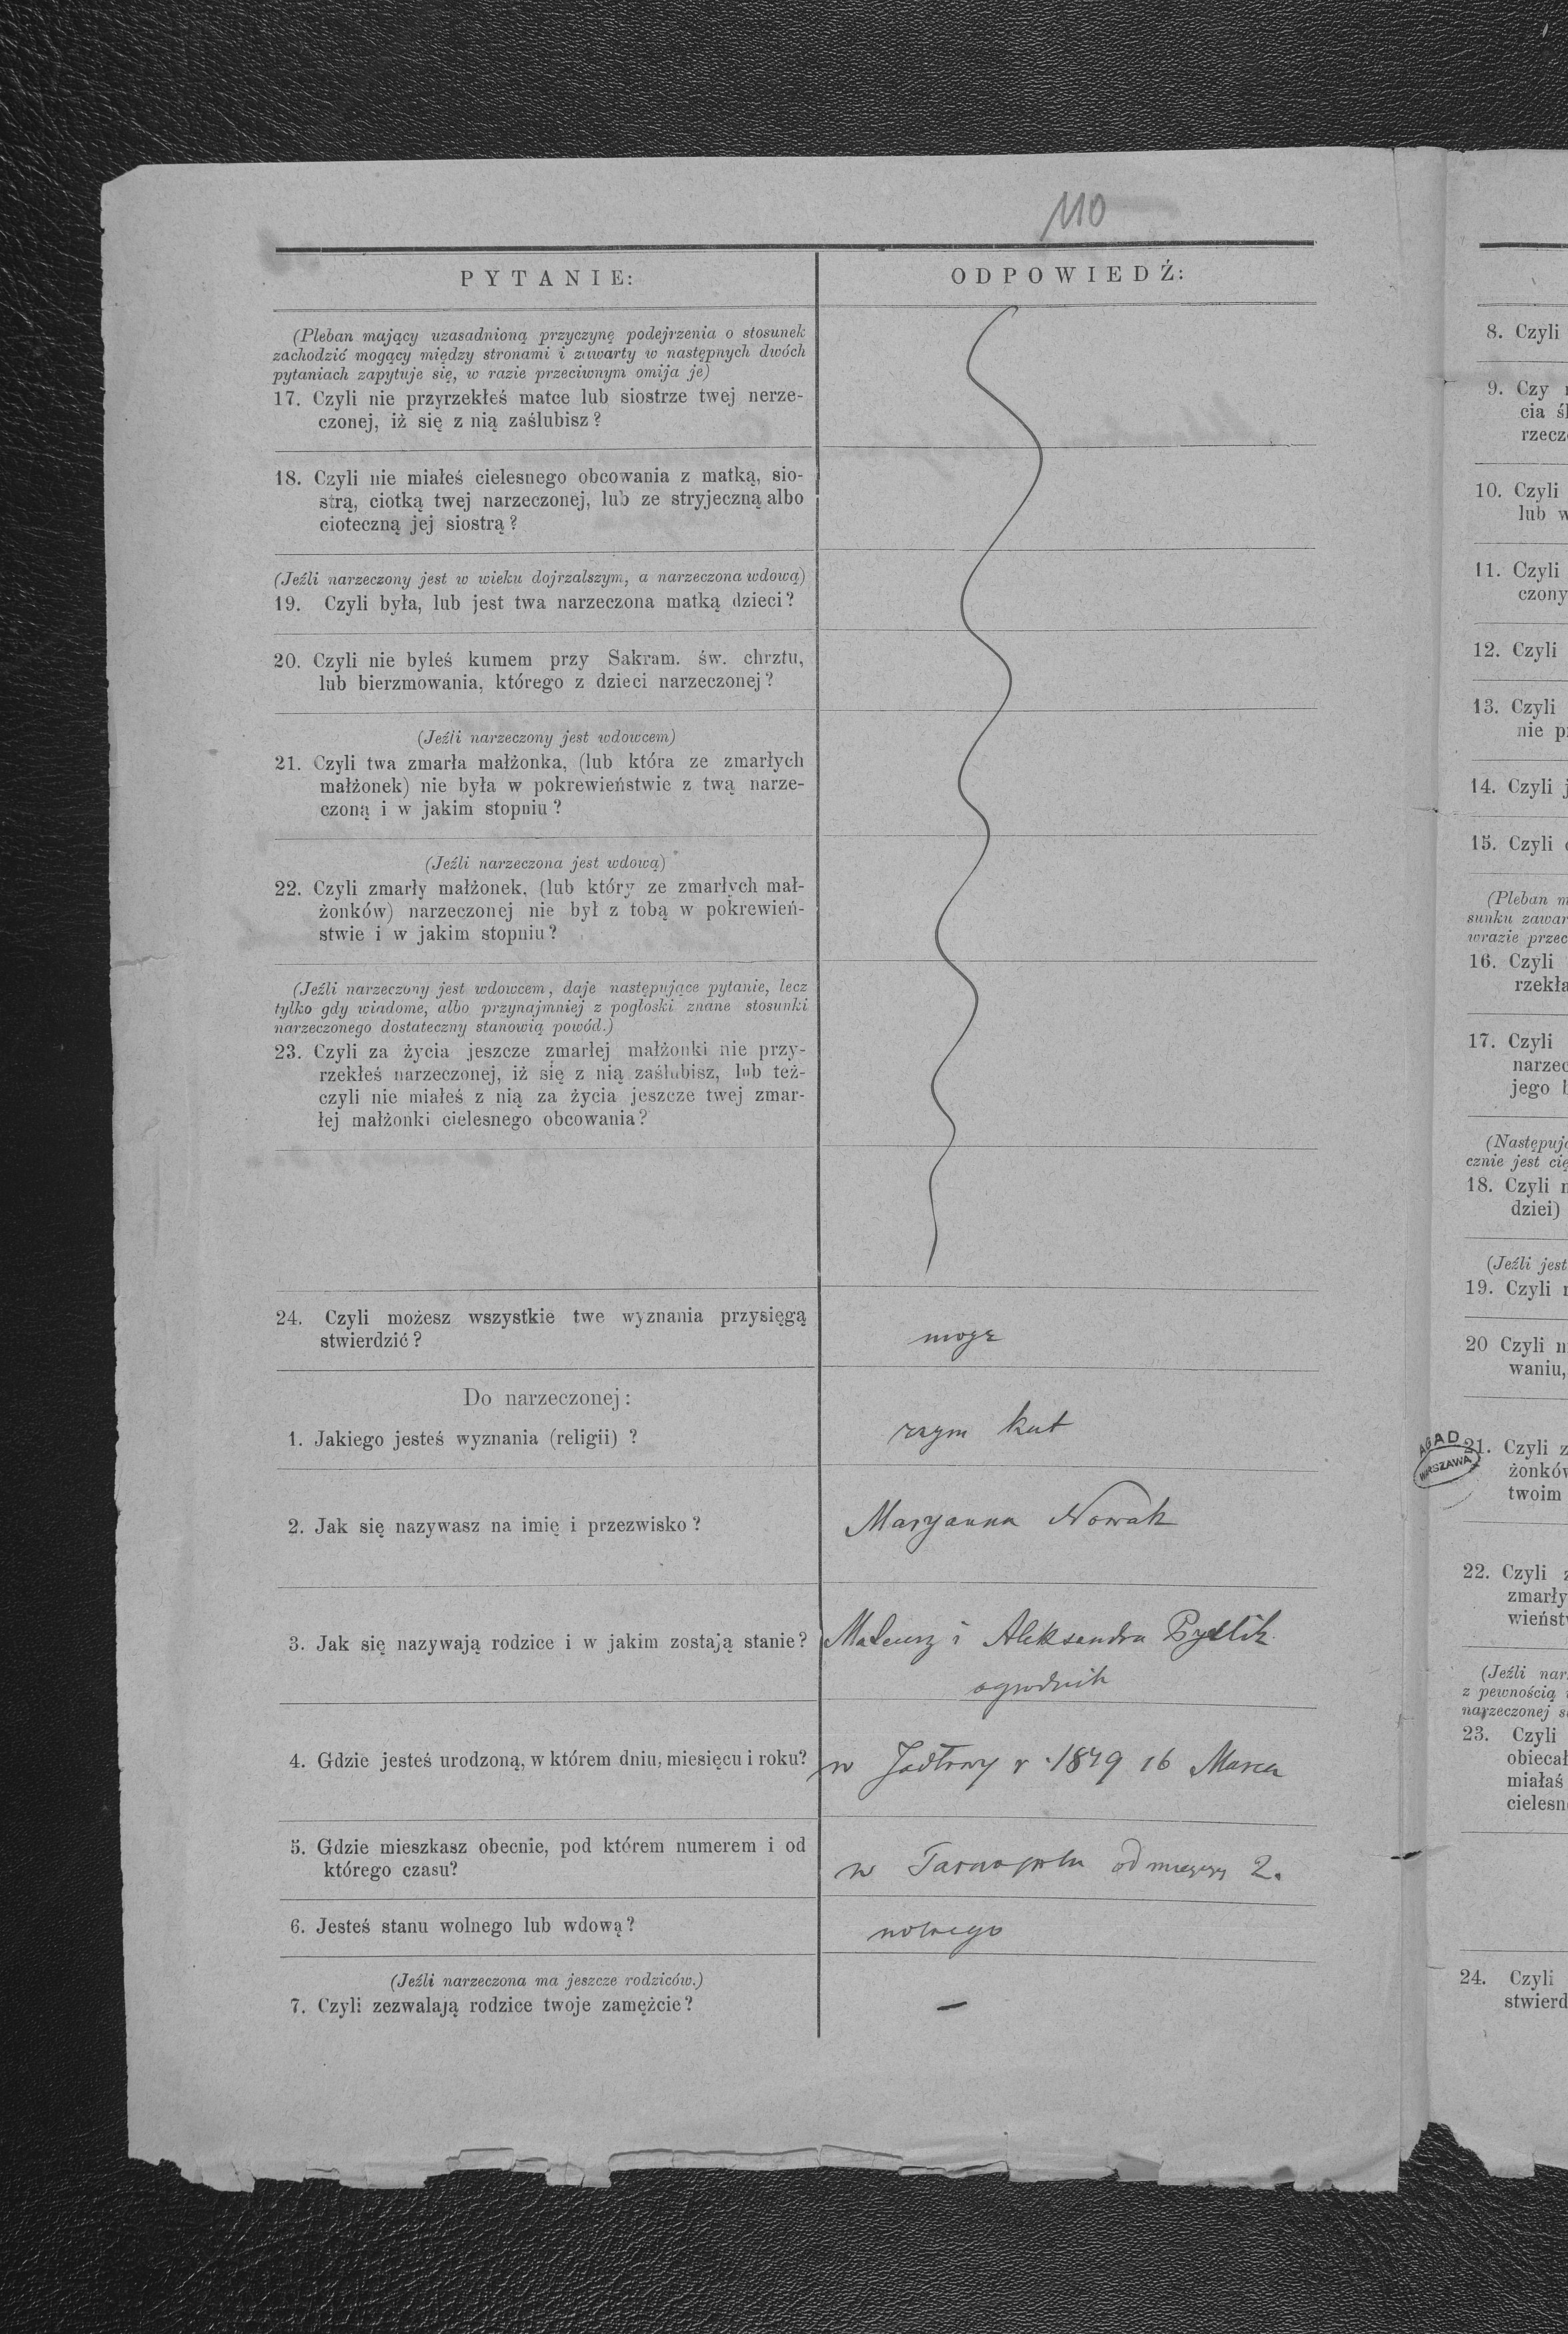 110
PYTANIE:
ODPOWIEDŹ:
(Pleban mający uzasadnioną przyczynę podejrzenia o stosunek
zachodzić mogący między stronami i zawarty w następnych dwóch
pytaniach zapytuje się, w razie przeciwnym omija je)
17. Czyli nie przyrzekłeś matce lub siostrze twej nerze-
czonej, iż się z nią zaślubisz?
18. Czyli nie miałeś cielesnego obcowania z matką, sio-
strą, ciotką twej narzeczonej, lub ze stryjeczną albo
cioteczną jej siostrą?
(Jeźli narzeczony jest w wieku dojrzalszym, a narzeczona wdową)
19. Czyli była, lub jest twa narzeczona matką dzieci?
20. Czyli nie byłeś kumem przy Sakram. św. chrztu,
lub bierzmowania, którego z dzieci narzeczonej?
(Jeźli narzeczony jest wdowcem)
21. Czyli twa zmarła małżonka, (lub która ze zmarłych
małżonek) nie była w pokrewieństwie z twą narze-
czoną i w jakim stopniu?
(Jeźli narzeczona jest wdową)
22. Czyli zmarły małżonek, (lub który ze zmarłych mał-
żonków) narzeczonej nie był z tobą w pokrewień-
stwie i w jakim stopniu?
(Jeźli narzeczony jest wdowcem, daje następujące pytanie, lecz
tylko gdy wiadome, albo przynajmniej z pogłoski znane stosunki
narzeczonego dostateczny stanowią powód.)
23. Czyli za życia jeszcze zmarłej małżonki nie przy-
rzekłeś narzeczonej, iż się z nią zaślubisz, lub też-
czyli nie miałeś z nią za życia jeszcze twej zmar-
łej małżonki cielesnego obcowania?
24. Czyli możesz wszystkie twe wyznania przysięgą
stwierdzić?
mogę
Do narzeczonej:
1. Jakiego jesteś wyznania (religii) ?
rzym kat
2. Jak się nazywasz na imię i przezwisko?
Maryanna Nowak
3. Jak się nazywają rodzice i w jakim zostają stanie?
Mateusz i Aleksandra
ogrodnik
4. Gdzie jesteś urodzoną, w którem dniu, miesięcu i roku?
w Jodłowy r. 1879 16 Marca
5. Gdzie mieszkasz obecnie, pod którem numerem i od
którego czasu?
w Tarnopolu od 2.
6. Jesteś stanu wolnego lub wdową?
wolnego
(Jeźli narzeczona ma jeszcze rodziców.)
7. Czyli zezwalają rodzice twoje zamężcie?
—
8. Czyli
9. Czy
cia
rzecz
10. Czyli
lub w
11. Czyli
czony
12. Czyli
13. Czyli
nie
14. Czyli
15. Czyli
(Pleban m
sunku zawar
wrazie przec
16. Czyli
rzekła
17. Czyli
narzec
jego
(Następują
cznie jest cię
18. Czyli
dziei)
(Jeźli jest
19. Czyli
20 Czyli
waniu,
AGAD
WARSZAWA
21. Czyli z
żonków
twoim
22. Czyli
zmarły
wieńst
(Jeźli nar
z pewnością
narzeczonej
23. Czyli
obiecał
miałaś
cielesn
24. Czyli
stwierd